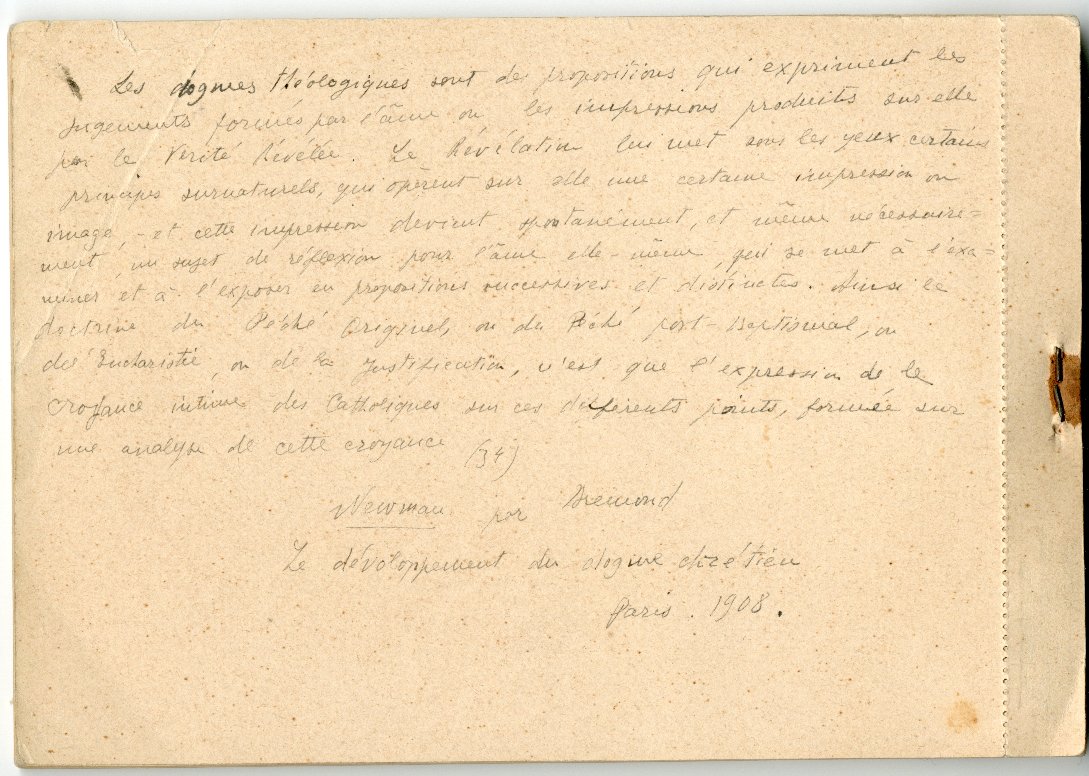 Les dogmes théologiques sont des propositions qui expriment les
jugements formés par l'âme ou les impressions produits sur elle
par la Vérité Révélée. La Révélation lui met sous les yeux certains
principes surnaturels, qui opèrent sur elle une certaine impression ou
image, - et cette impression devient spontanément, et même nécessaire=
ment, un sujet de réflexion pour l'âme elle-même, qui se met à l'exa=
miner et à l'exposer en propositions successives et distinctes. Ainsi la
doctrine du Péché Originel, ou du Péché post-Baptismal, ou
de l'Eucharistie, ou de la Justification, n'est que l'expression de la
croyance intime des Catholiques sur ces différents points, formée sur
une analyse de cette croyance (34)
Newman par Bremond
Le dévoloppement du dogme chrétien
Paris. 1908.